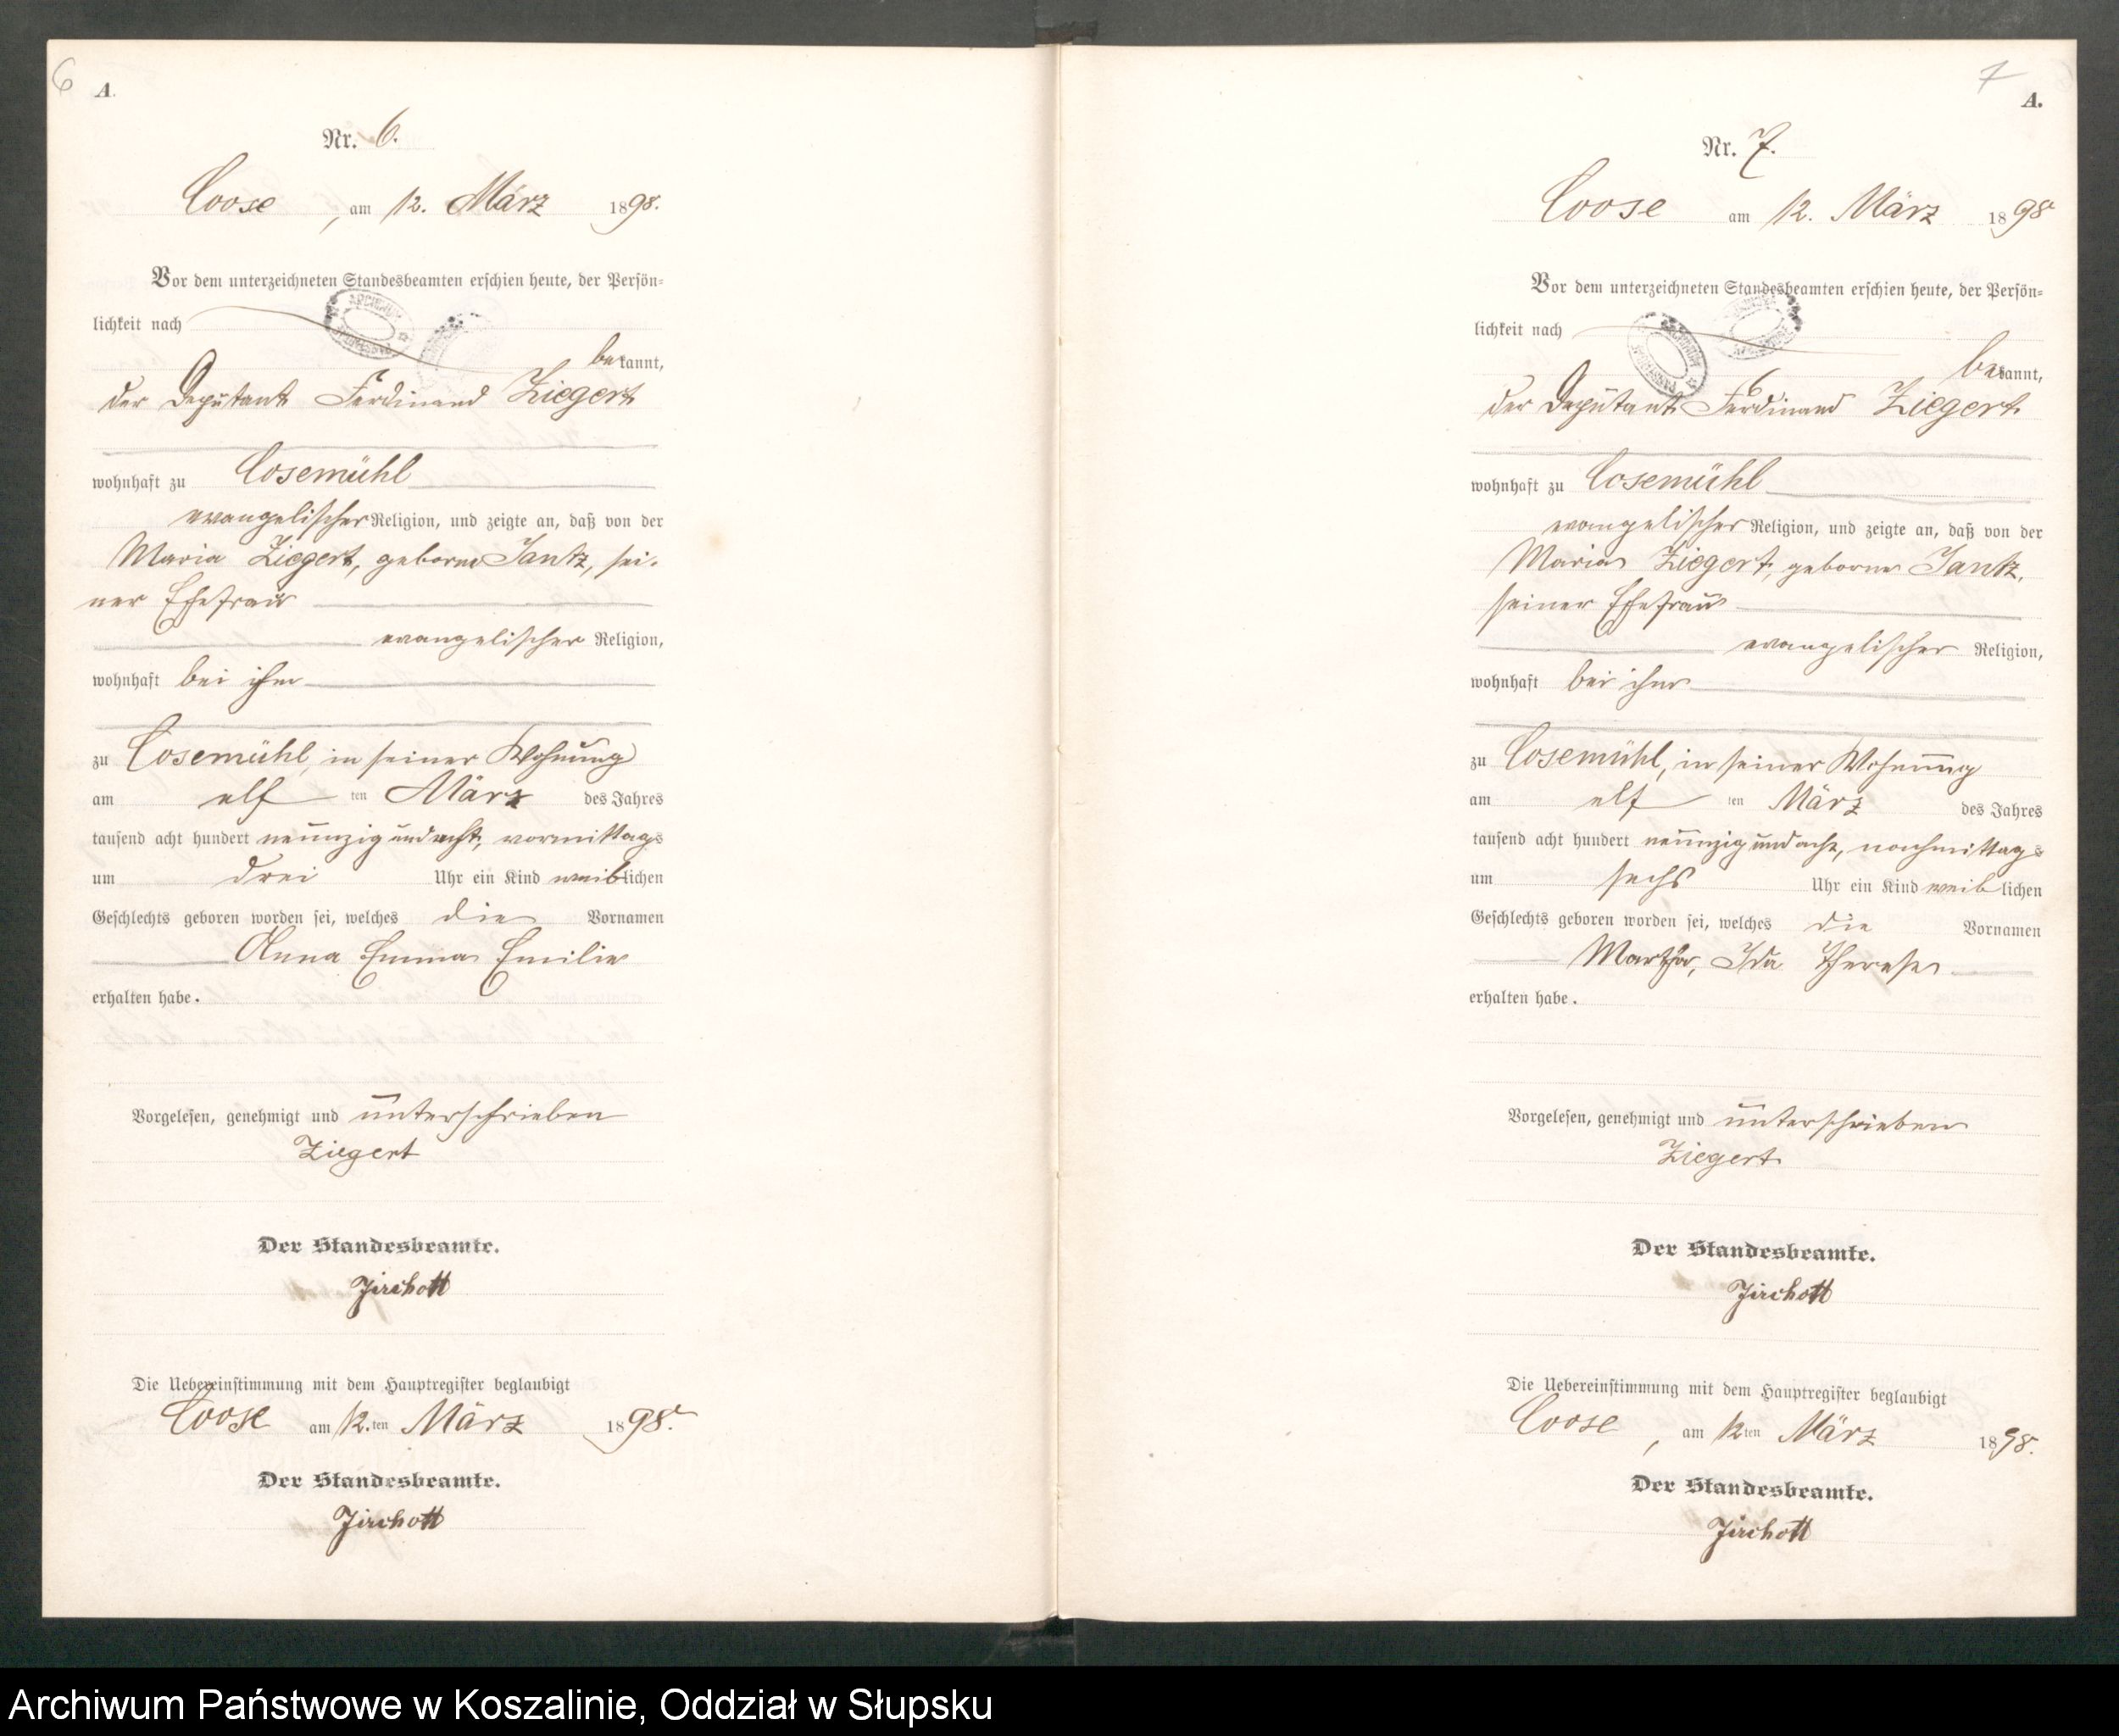 6
A.
Nr. 6.
Coose, am 12. März 1898.
Vor dem unterzeichneten Standesbeamten erschien heute, der Persön-
lichkeit nach
bekannt,
der Deputant Ferdinand Ziegert
wohnhaft zu Cosemühl
evangelischer Religion, und zeigte an, daß von der
Maria Ziegert, geborne Jantz, sei-
ner Ehefrau
evangelischer Religion,
wohnhaft bei ihm
zu Cosemühl, in seiner Wohnung
am elf ten März des Jahres
tausend acht hundert neunzig und acht, vormittags
um drei Uhr ein Kind weiblichen
Geschlechts geboren worden sei, welches die Vornamen
Anna Emma Emilie
erhalten habe.
Vorgelesen, genehmigt und unterschrieben
Ziegert
Der Standesbeamte.
Jirchott
Die Uebereinstimmung mit dem Hauptregister beglaubigt
Coose am 12.ten März 1898.
Der Standesbeamte.
Jirchott
7
A.
Nr. 7.
Coose am 12. März 1898
Vor dem unterzeichneten Standesbeamten erschien heute, der Persön-
lichkeit nach
bekannt,
der Deputant Ferdinand Ziegert
wohnhaft zu Cosemühl
evangelischer Religion, und zeigte an, daß von der
Maria Ziegert, geborne Jantz,
seiner Ehefrau
evangelischer Religion,
wohnhaft bei ihm
zu Cosemühl, in seiner Wohnung
am elf ten März des Jahres
tausend acht hundert neunzig und acht, nachmittags
um sechs Uhr ein Kind weiblichen
Geschlechts geboren worden sei, welches die Vornamen
Martha, Ida Therese
erhalten habe.
Vorgelesen, genehmigt und unterschrieben
Ziegert
Der Standesbeamte.
Jirchott
Die Uebereinstimmung mit dem Hauptregister beglaubigt
Coose, am 12ten März 1898.
Der Standesbeamte.
Jirchott
Archiwum Państwowe w Koszalinie, Oddział w Słupsku